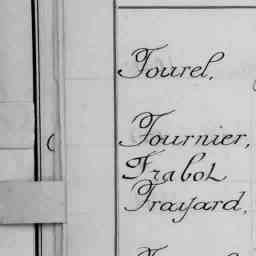 Tourel,
Tournier,
Trabot
Trayard,